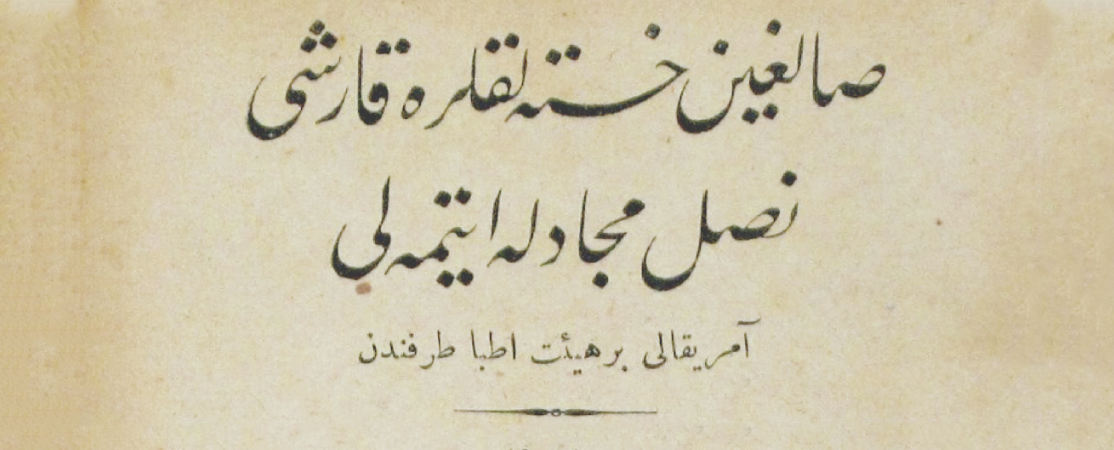 صالغين خسته لقلره قارشى
نصل مجادله ايتمه لى
آمريقالى بر هيئت اطبا طرفندن